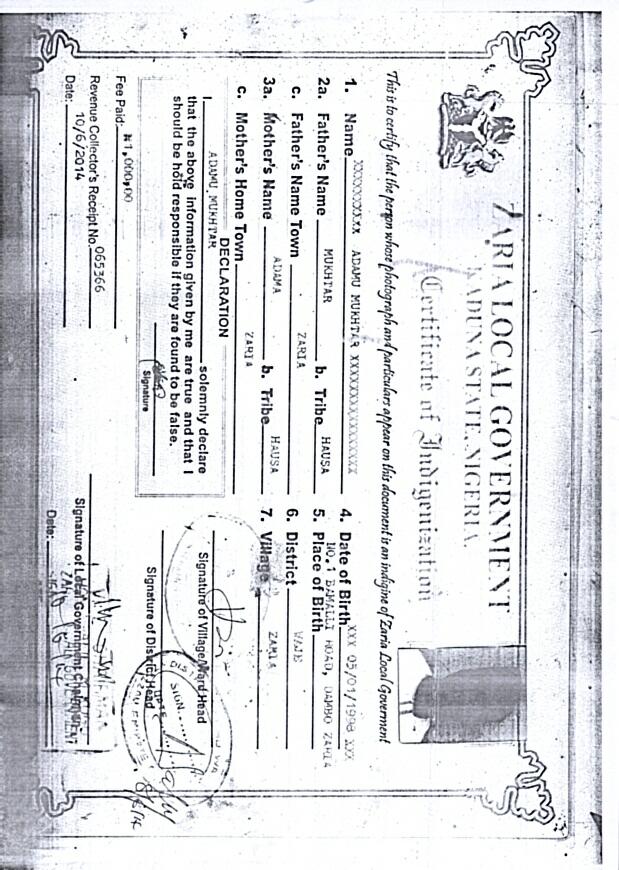 ZARIA LOCAL GOVERNMENT
KADUNA STATE, NIGERIA.
Certificate of Indigenization
This is to certify that the person whose photograph and particulars appear on this document is an indigine of Zaria Local Goverment
1. Name XXXXXXXXXX ADAMU MUKHTAR XXXXXXXXXXXXXXXXX
2a. Father's Name MUKHTAR b. Tribe HAUSA
c. Father's Name Town ZARIA
3a. Mother's Name ADAMA b. Tribe HAUSA
c. Mother's Home Town ZARIA
4. Date of Birth XXX 05/01/1998 XXX
5. Place of Birth NO.1 BAMALLI ROAD, DAMBO ZARIA
6. District WAJE
7. Village ZARIA
DECLARATION
I ADAMU MUKHTAR solemnly declare
that the above information given by me are true and that I
should be hold responsible if they are found to be false.
Signature
Fee Paid: ₦1,000,00
Revenue Collector's Receipt No. 065366
Date: 10/6/2014
Signature of Village/Ward Head
DIST
SIGN
DATE
Signature of District Head
Signature of Local Government Chairman
Date: